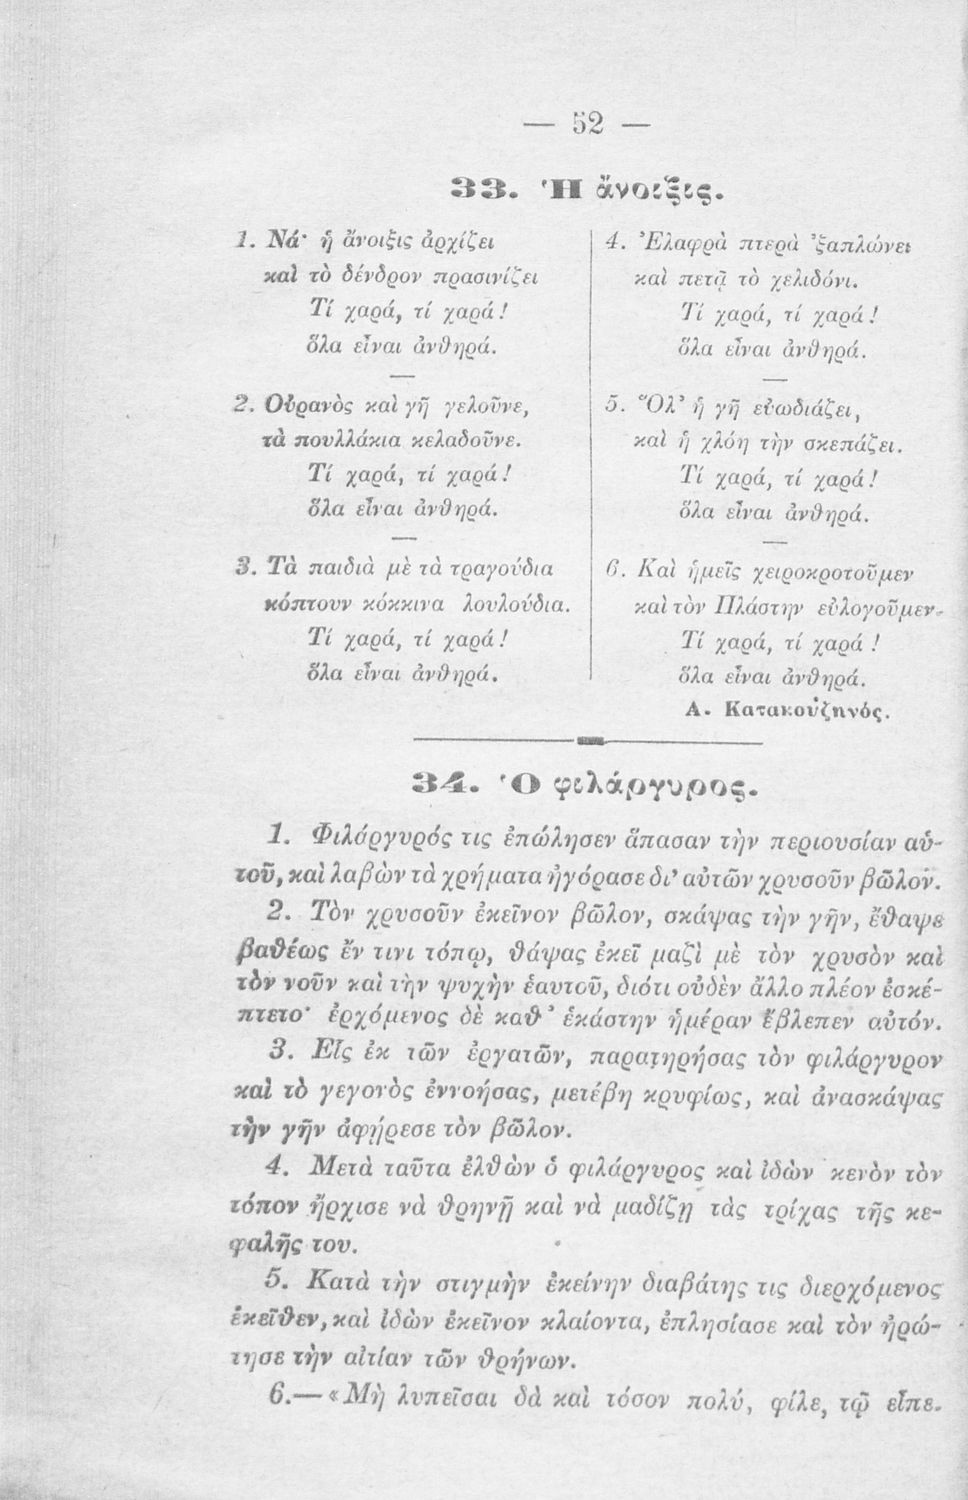 — 52 —
33. Ἡ ἄνοιξις.
1. Νά· ἡ ἄνοιξις ἀρχίζει
καὶ τὸ δένδρον πρασινίζει
Τί χαρά, τί χαρά!
ὅλα εἶναι ἀνθηρά.
2. Οὐρανὸς καὶ γῆ γελοῦνε,
τὰ πουλλάκια κελαδοῦνε.
Τί χαρά, τί χαρά!
ὅλα εἶναι ἀνθηρά.
3. Τὰ παιδιὰ μὲ τὰ τραγούδια
κόπτουν κόκκινα λουλούδια.
Τί χαρά, τί χαρά!
ὅλα εἶναι ἀνθηρά.
4. Ἐλαφρὰ πτερὰ ᾽ξαπλώνει
καὶ πετᾷ τὸ χελιδόνι.
Τί χαρά, τί χαρά!
ὅλα εἶναι ἀνθηρά.
5. Ὅλ᾽ ἡ γῆ εὐωδιάζει,
καὶ ἡ χλόη τὴν σκεπάζει.
Τί χαρά, τί χαρά!
ὅλα εἶναι ἀνθηρά.
6. Καὶ ἡμεῖς χειροκροτοῦμεν
καὶ τὸν Πλάστην εὐλογοῦμεν.
Τί χαρά, τί χαρά!
ὅλα εἶναι ἀνθηρά.
Α. Κατακουζηνός.
34. Ὁ φιλάργυρος.
1. Φιλάργυρός τις ἐπώλησεν ἅπασαν τὴν περιουσίαν αὑ-
τοῦ, καὶ λαβὼν τὰ χρήματα ἠγόρασε δι᾽ αὐτῶν χρυσοῦν βῶλον.
2. Τὸν χρυσοῦν ἐκεῖνον βῶλον, σκάψας τὴν γῆν, ἔθαψε
βαθέως ἔν τινι τόπῳ, θάψας ἐκεῖ μαζὶ μὲ τὸν χρυσὸν καὶ
τὸν νοῦν καὶ τὴν ψυχὴν ἑαυτοῦ, διότι οὐδὲν ἄλλο πλέον ἐσκέ-
πτετο· ἐρχόμενος δὲ καθ᾽ ἑκάστην ἡμέραν ἔβλεπεν αὐτόν.
3. Εἷς ἐκ τῶν ἐργατῶν, παρατηρήσας τὸν φιλάργυρον
καὶ τὸ γεγονὸς ἐννοήσας, μετέβη κρυφίως, καὶ ἀνασκάψας
τὴν γῆν ἀφῄρεσε τὸν βῶλον.
4. Μετὰ ταῦτα ἐλθὼν ὁ φιλάργυρος καὶ ἰδὼν κενὸν τὸν
τόπον ἤρχισε νὰ θρηνῇ καὶ νὰ μαδίζῃ τὰς τρίχας τῆς κε-
φαλῆς του.
5. Κατὰ τὴν στιγμὴν ἐκείνην διαβάτης τις διερχόμενος
ἐκεῖθεν, καὶ ἰδὼν ἐκεῖνον κλαίοντα, ἐπλησίασε καὶ τὸν ἠρώ-
τησε τὴν αἰτίαν τῶν θρήνων.
6.— «Μὴ λυπεῖσαι δὰ καὶ τόσον πολύ, φίλε, τῷ εἶπε.